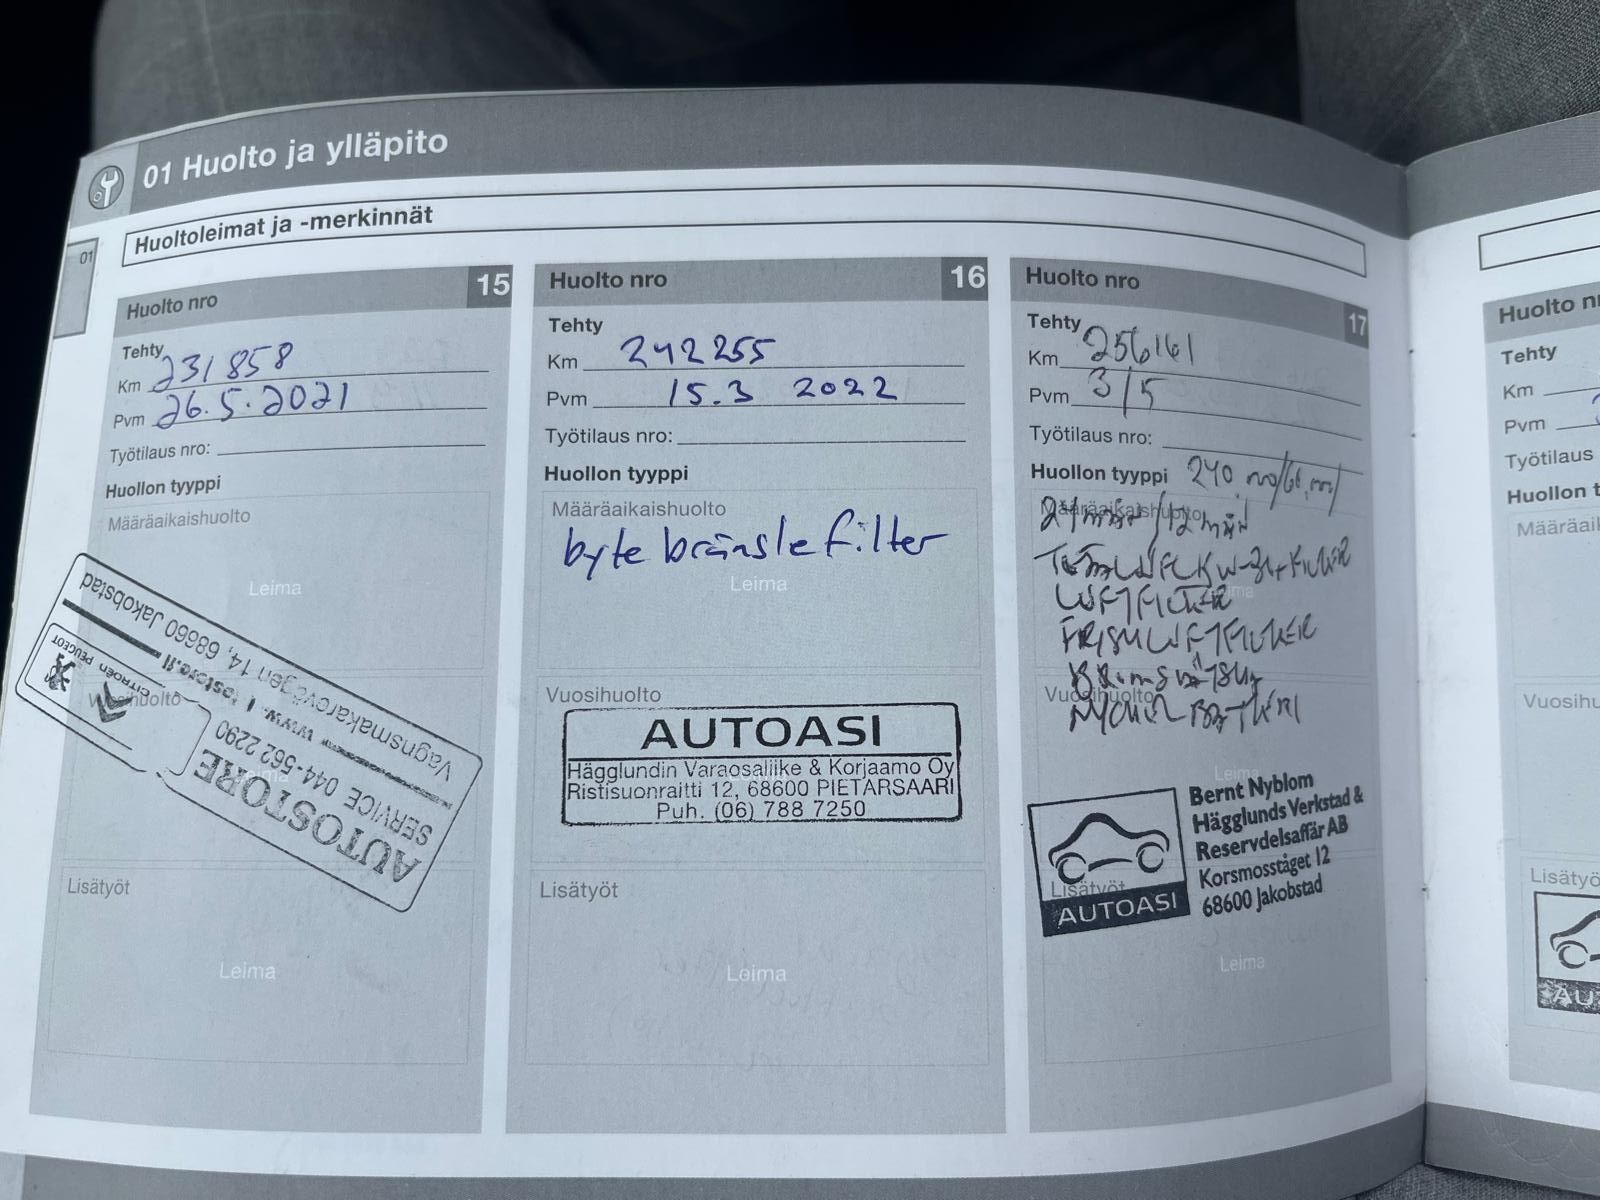 01 Huolto ja ylläpito
Huoltoleimat ja -merkinnät
01
Huolto nro 15
Tehty
Km 231 858
Pvm 26.5.2021
Työtilaus nro:
Huollon tyyppi
Määräaikaishuolto
Leima
Vuosihuolto
Leima
AUTOSTORE
SERVICE 044-562 2290
Vagnsmakarevägen 14, 68660 Jakobstad
CITROËN PEUGEOT
Lisätyöt
Leima
Huolto nro 16
Tehty
Km 242255
Pvm 15.3 2022
Työtilaus nro:
Huollon tyyppi
Määräaikaishuolto
byte bränsle filter
Leima
Vuosihuolto
AUTOASI
Hägglundin Varaosaliike & Korjaamo Oy
Ristisuonraitti 12, 68600 PIETARSAARI
Puh. (06) 788 7250
Lisätyöt
Leima
Huolto nro 17
Tehty
Km 256161
Pvm 3/5
Työtilaus nro:
Huollon tyyppi 240
Määräaikaishuolto
LUFTFILTER
FRISKLUFTFILTER
Vuosihuolto
BATTERI
Leima
Bernt Nyblom
Hägglunds Verkstad &
Reservdelsaffär AB
Korsmosståget 12
68600 Jakobstad
AUTOASI
Lisätyöt
Leima
Huolto
Tehty
Km
Pvm
Työtilaus
Huollon